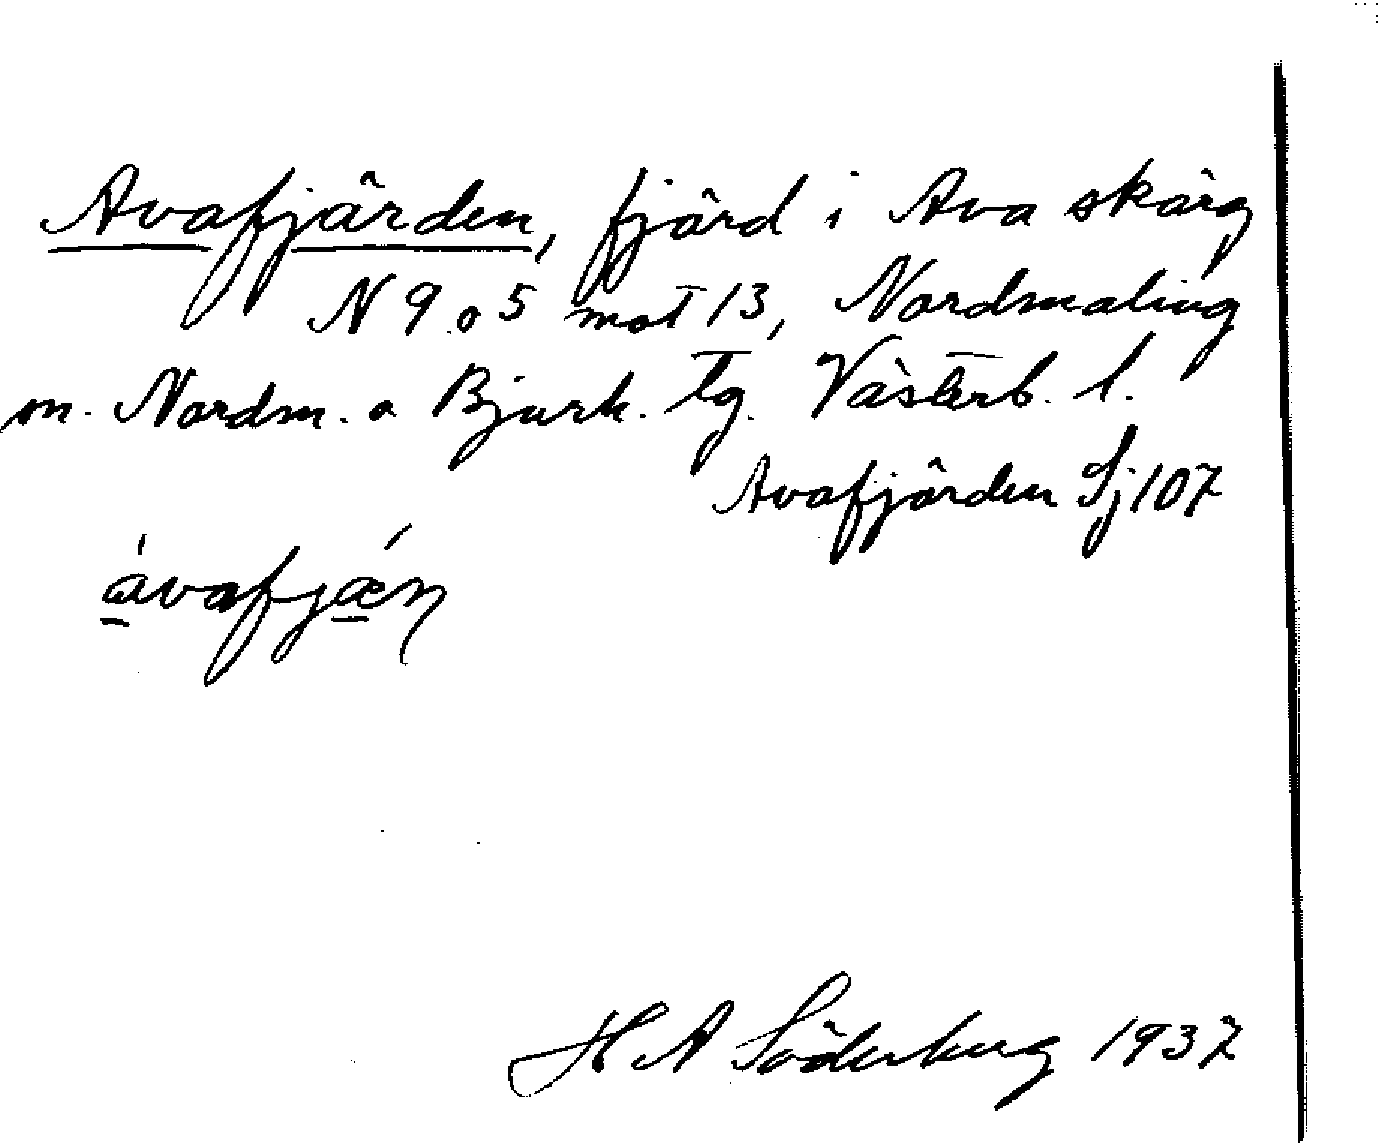 Avafjärden, fjärd i Ava skärg
N 9 o 5 mot 13, Nordmaling
sn. Nordm. o Bjurh. tg. Västerb. l.
Avafjärden Sj 107
ávafjǽn
H A Söderberg 1937